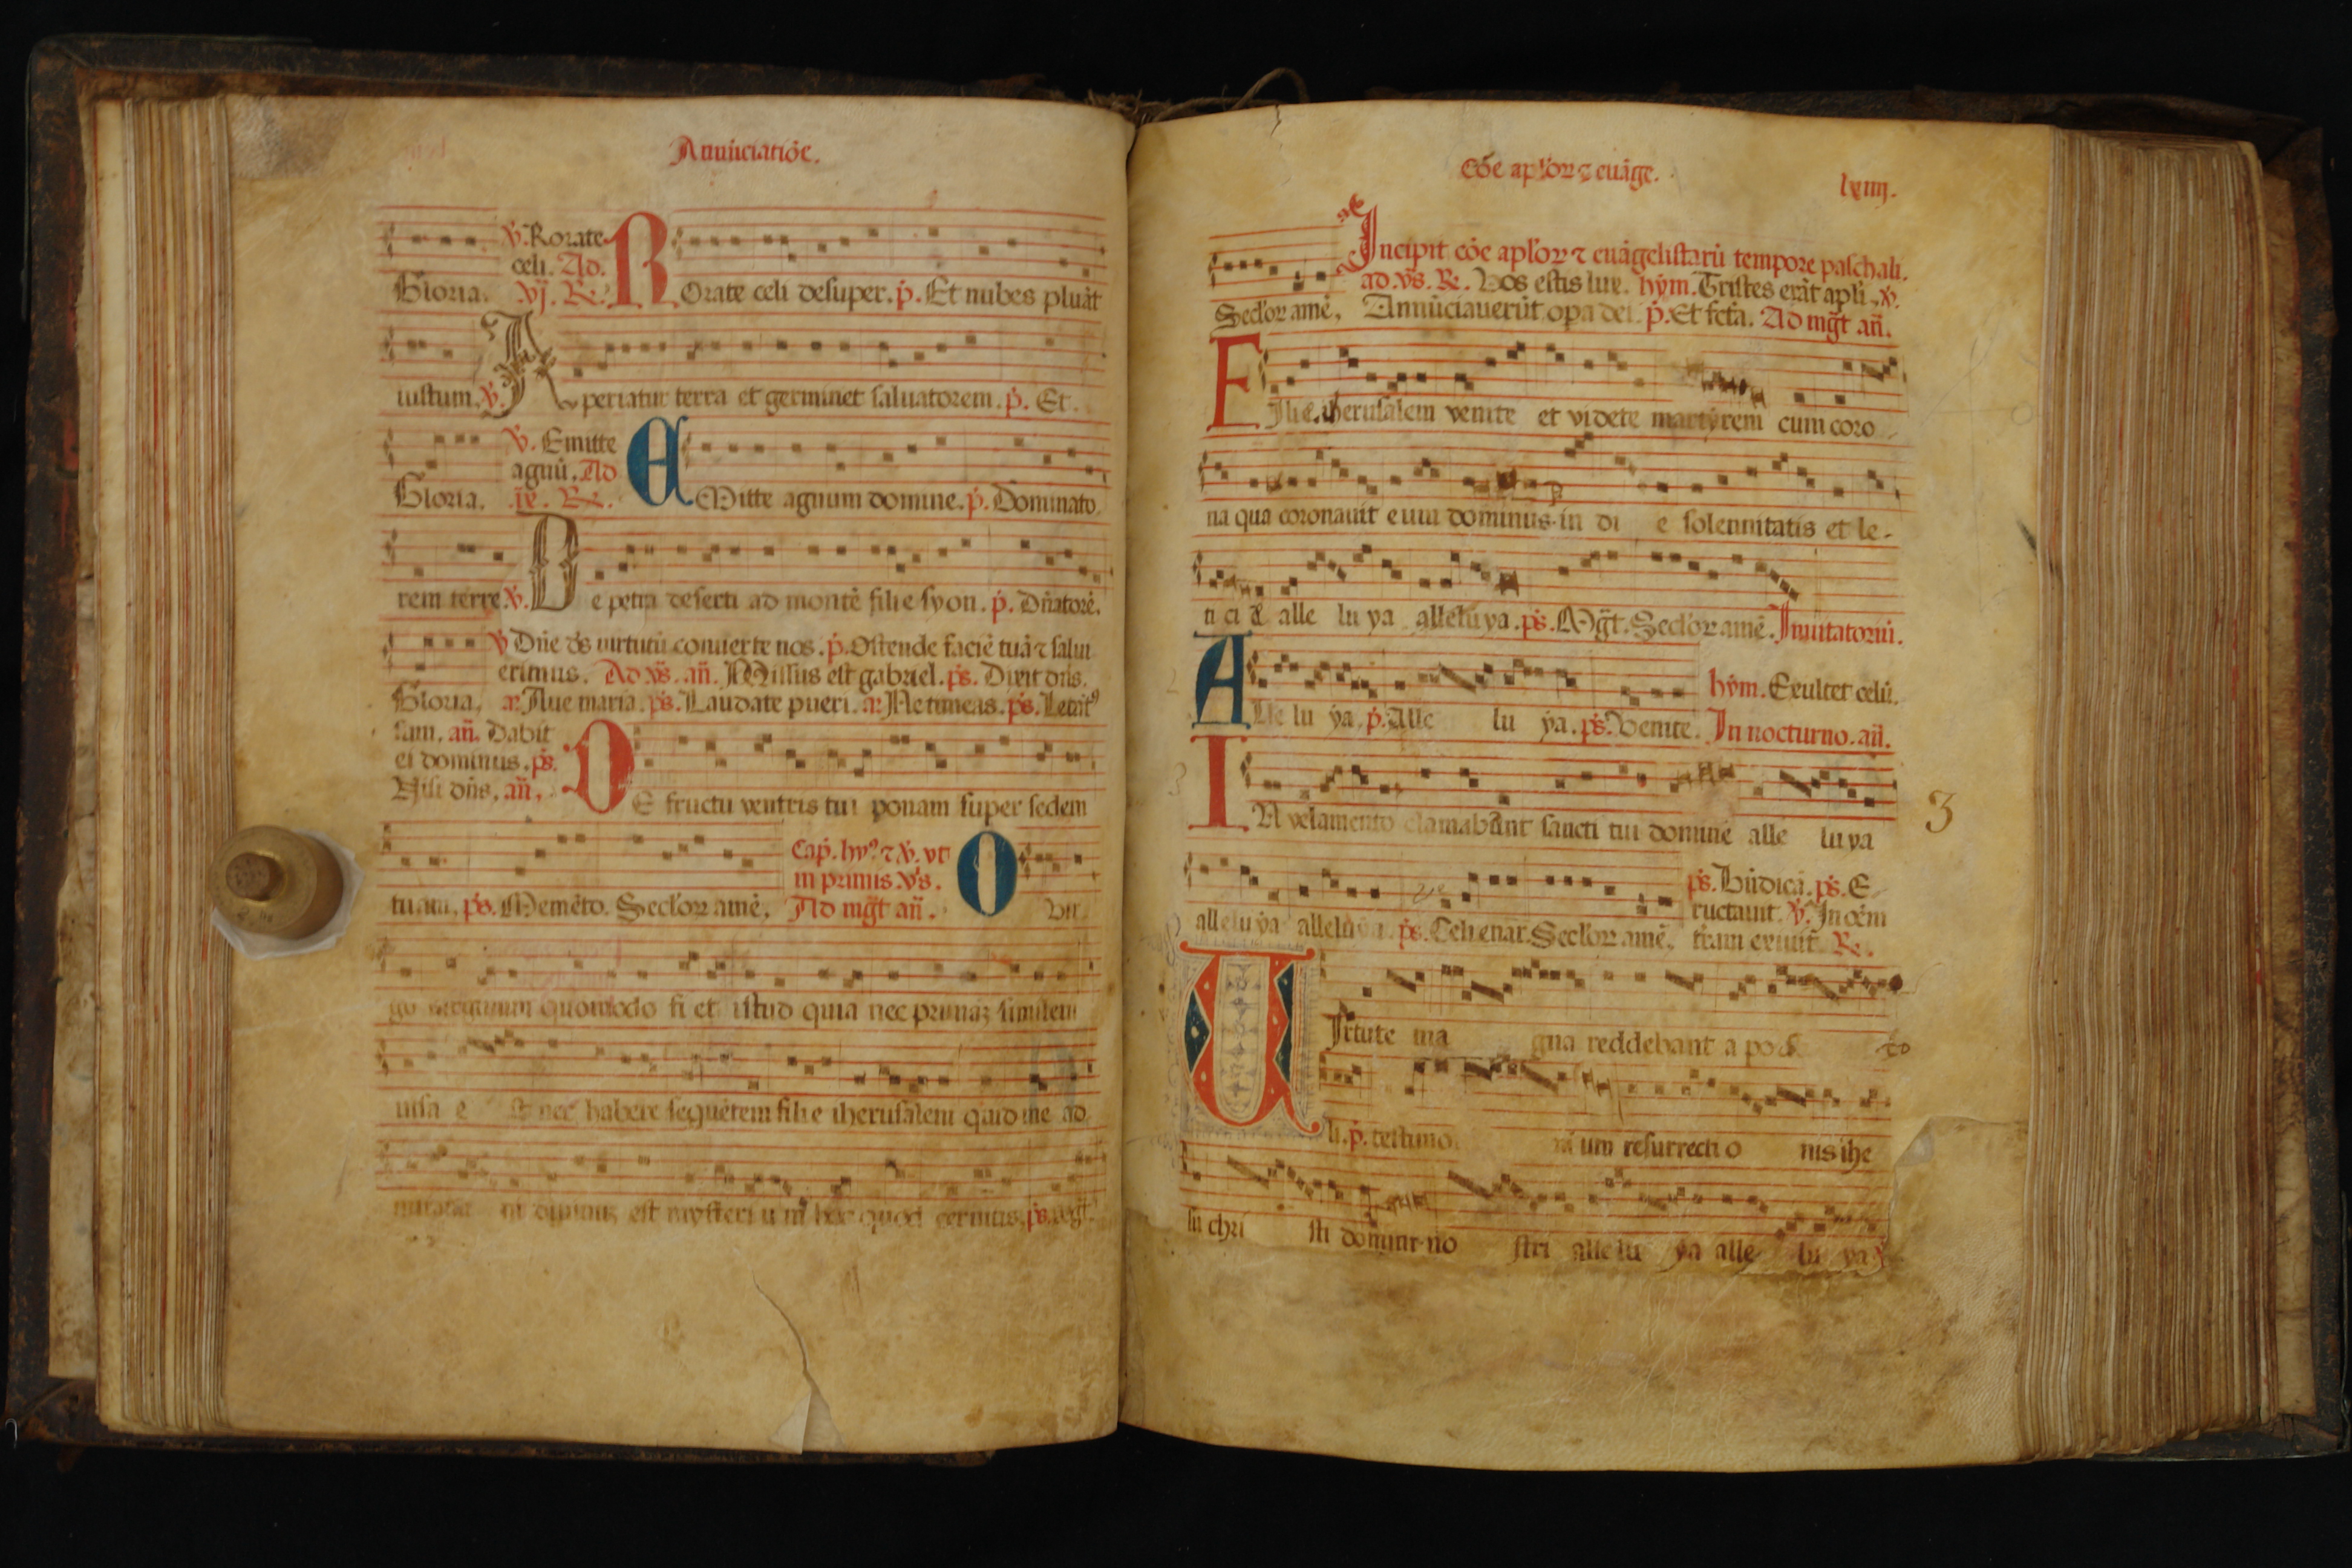 Annūciatiōe.
℣. Rorate
celi. Ad.
Gloria. vj. ℞. ROrate celi desuper. p̄. Et nubes pluāt
iustum. ℣. Aperiatur terra et germinet saluatorem. p̄. Et.
℣. Emitte
agnū. Ad
Gloria. ix. ℞. EMitte agnum domine. p̄. Dominato
rem terre ℣. De petra deserti ad montē filie syon. p̄. Dn̄atorē.
℣ Dn̄e ds̄ uirtutū conuerte nos. p̄. Ostende faciē tuā ⁊ salui
erimus. Ad vs̄. an̄. Missus est gabriel. ps̄. Dixit dn̄s.
Gloria. a⁊ Aue maria. ps̄. Laudate pueri. a⁊ Ne timeas. ps̄. Letat⁹
sum. an̄. Dabit
ei dominus. ps̄.
Nisi dn̄s. an̄. DE fructu ventris tui ponam super sedem
Cap̄. hy⁹ ⁊ ℣. vt
in primis vs̄.
tuam. ps̄. Memēto. Secl'oꝝ amē. Ad mḡt an̄. O vir
go uirginum quomodo fi et istud quia nec primaꝫ similem
uisa e st nec habere sequētem filie iherusalem quid me ad
miramini diuinuꝫ est mysteri u m hoc quod cernitis. ps̄. mḡt.
Cōe apl'oꝝ ⁊ euāge.
lxiiij.
Incipit cōe apl'oꝝ ⁊ euāgelistarū tempore paschali.
ad. vs̄. ℞. Vos estis lux. hym̄. Tristes erāt apl'i. ℣.
Secl'oꝝ amē. Annūciauerūt opa dei. p̄. Et fcta. Ad mḡt an̄.
FIlie iherusalem venite et videte martyrem cum coro
na qua coronauit eum dominus in di e solennitatis et le-
ti ci e alle lu ya alleluya. ps̄. Mḡt. Secl'oꝝ amē. Inuitatoriū.
hym̄. Exultet celū.
ALle lu ya. p̄. Alle lu ya. ps̄. Venite. In nocturno. an̄.
IN velamento clamabant sancti tui domine alle lu ya
3
ps̄. Bn̄dicā. ps̄. E
ructauit. ℣. In oēm
alleluya alleluya. ps̄. Celi enar. Secl'oꝝ amē. trām exiuit. ℞.
VIrtute ma gna reddebant a pos to
li. p̄. testimo ni um resurrecti o nis ihe
su chri sti domini no stri alle lu ya alle lu ya ℣